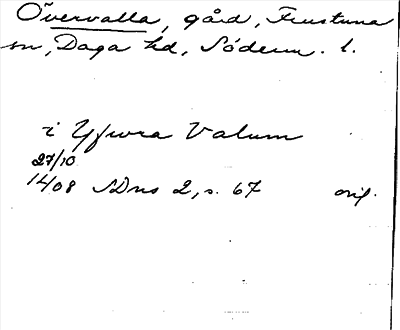 Övervalla, gård, Frustuna
sn, Daga hd, Söderm. l.
i Yfwra Valum
27/10
1408 SDns 2, s. 67 orig.